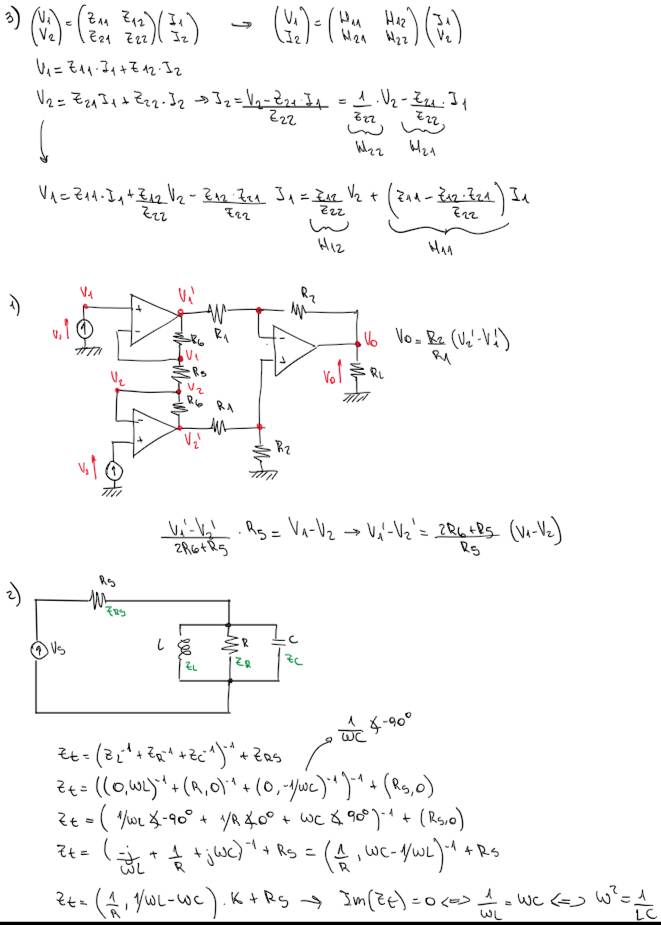 3) (V1 V2) = (Z11 Z12 Z21 Z22) (I1 I2) → (V1 I2) = (H11 H12 H21 H22) (I1 V2)
V1 = Z11·I1 + Z12·I2
V2 = Z21 I1 + Z22·I2 → I2 = (V2 - Z21·I1)/Z22 = 1/Z22 · V2 - Z21/Z22 · I1
H22 H21
V1 = Z11·I1 + Z12/Z22 V2 - Z12·Z21/Z22 I1 = Z12/Z22 V2 + (Z11 - Z12·Z21/Z22) I1
H12 H11
1)
V1
V1'
R1
R2
V1
+
-
R6
V1
R5
V2
V2
R6
-
+
R1
V2'
Vs
-
+
R2
V0
V0
RL
V0 = R2/R1 (V2' - V1')
(V1' - V2')/(2R6+R5) · R5 = V1 - V2 → V1' - V2' = (2R6+R5)/R5 (V1 - V2)
2)
RS
ZRS
VS
L
ZL
R
ZR
C
ZC
1/ωC ∡-90°
Zt = (ZL^-1 + ZR^-1 + ZC^-1)^-1 + ZRS
Zt = ((0, ωL)^-1 + (R, 0)^-1 + (0, -1/ωC)^-1)^-1 + (RS, 0)
Zt = (1/ωL ∡-90° + 1/R ∡0° + ωC ∡90°)^-1 + (RS, 0)
Zt = (-j/ωL + 1/R + jωC)^-1 + RS = (1/R, ωC - 1/ωL)^-1 + RS
Zt = (1/R, 1/ωL - ωC)·K + RS → Im(Zt) = 0 <=> 1/ωL = ωC <=> ω² = 1/LC